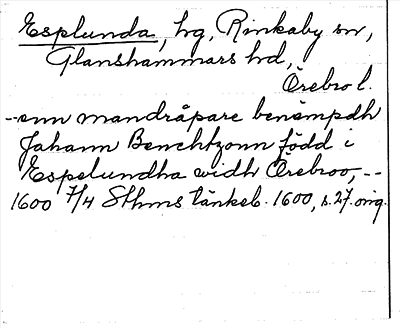 Esplunda, hg, Rinkaby sn,
Glanshammars hd,
Örebro l.
--enn mandråpare benämpdh
Jahann Benchtzonn född i
Espelundha widh Örebroo, --
1600 7/4 Sthms tänkeb. 1600, s. 27. orig.